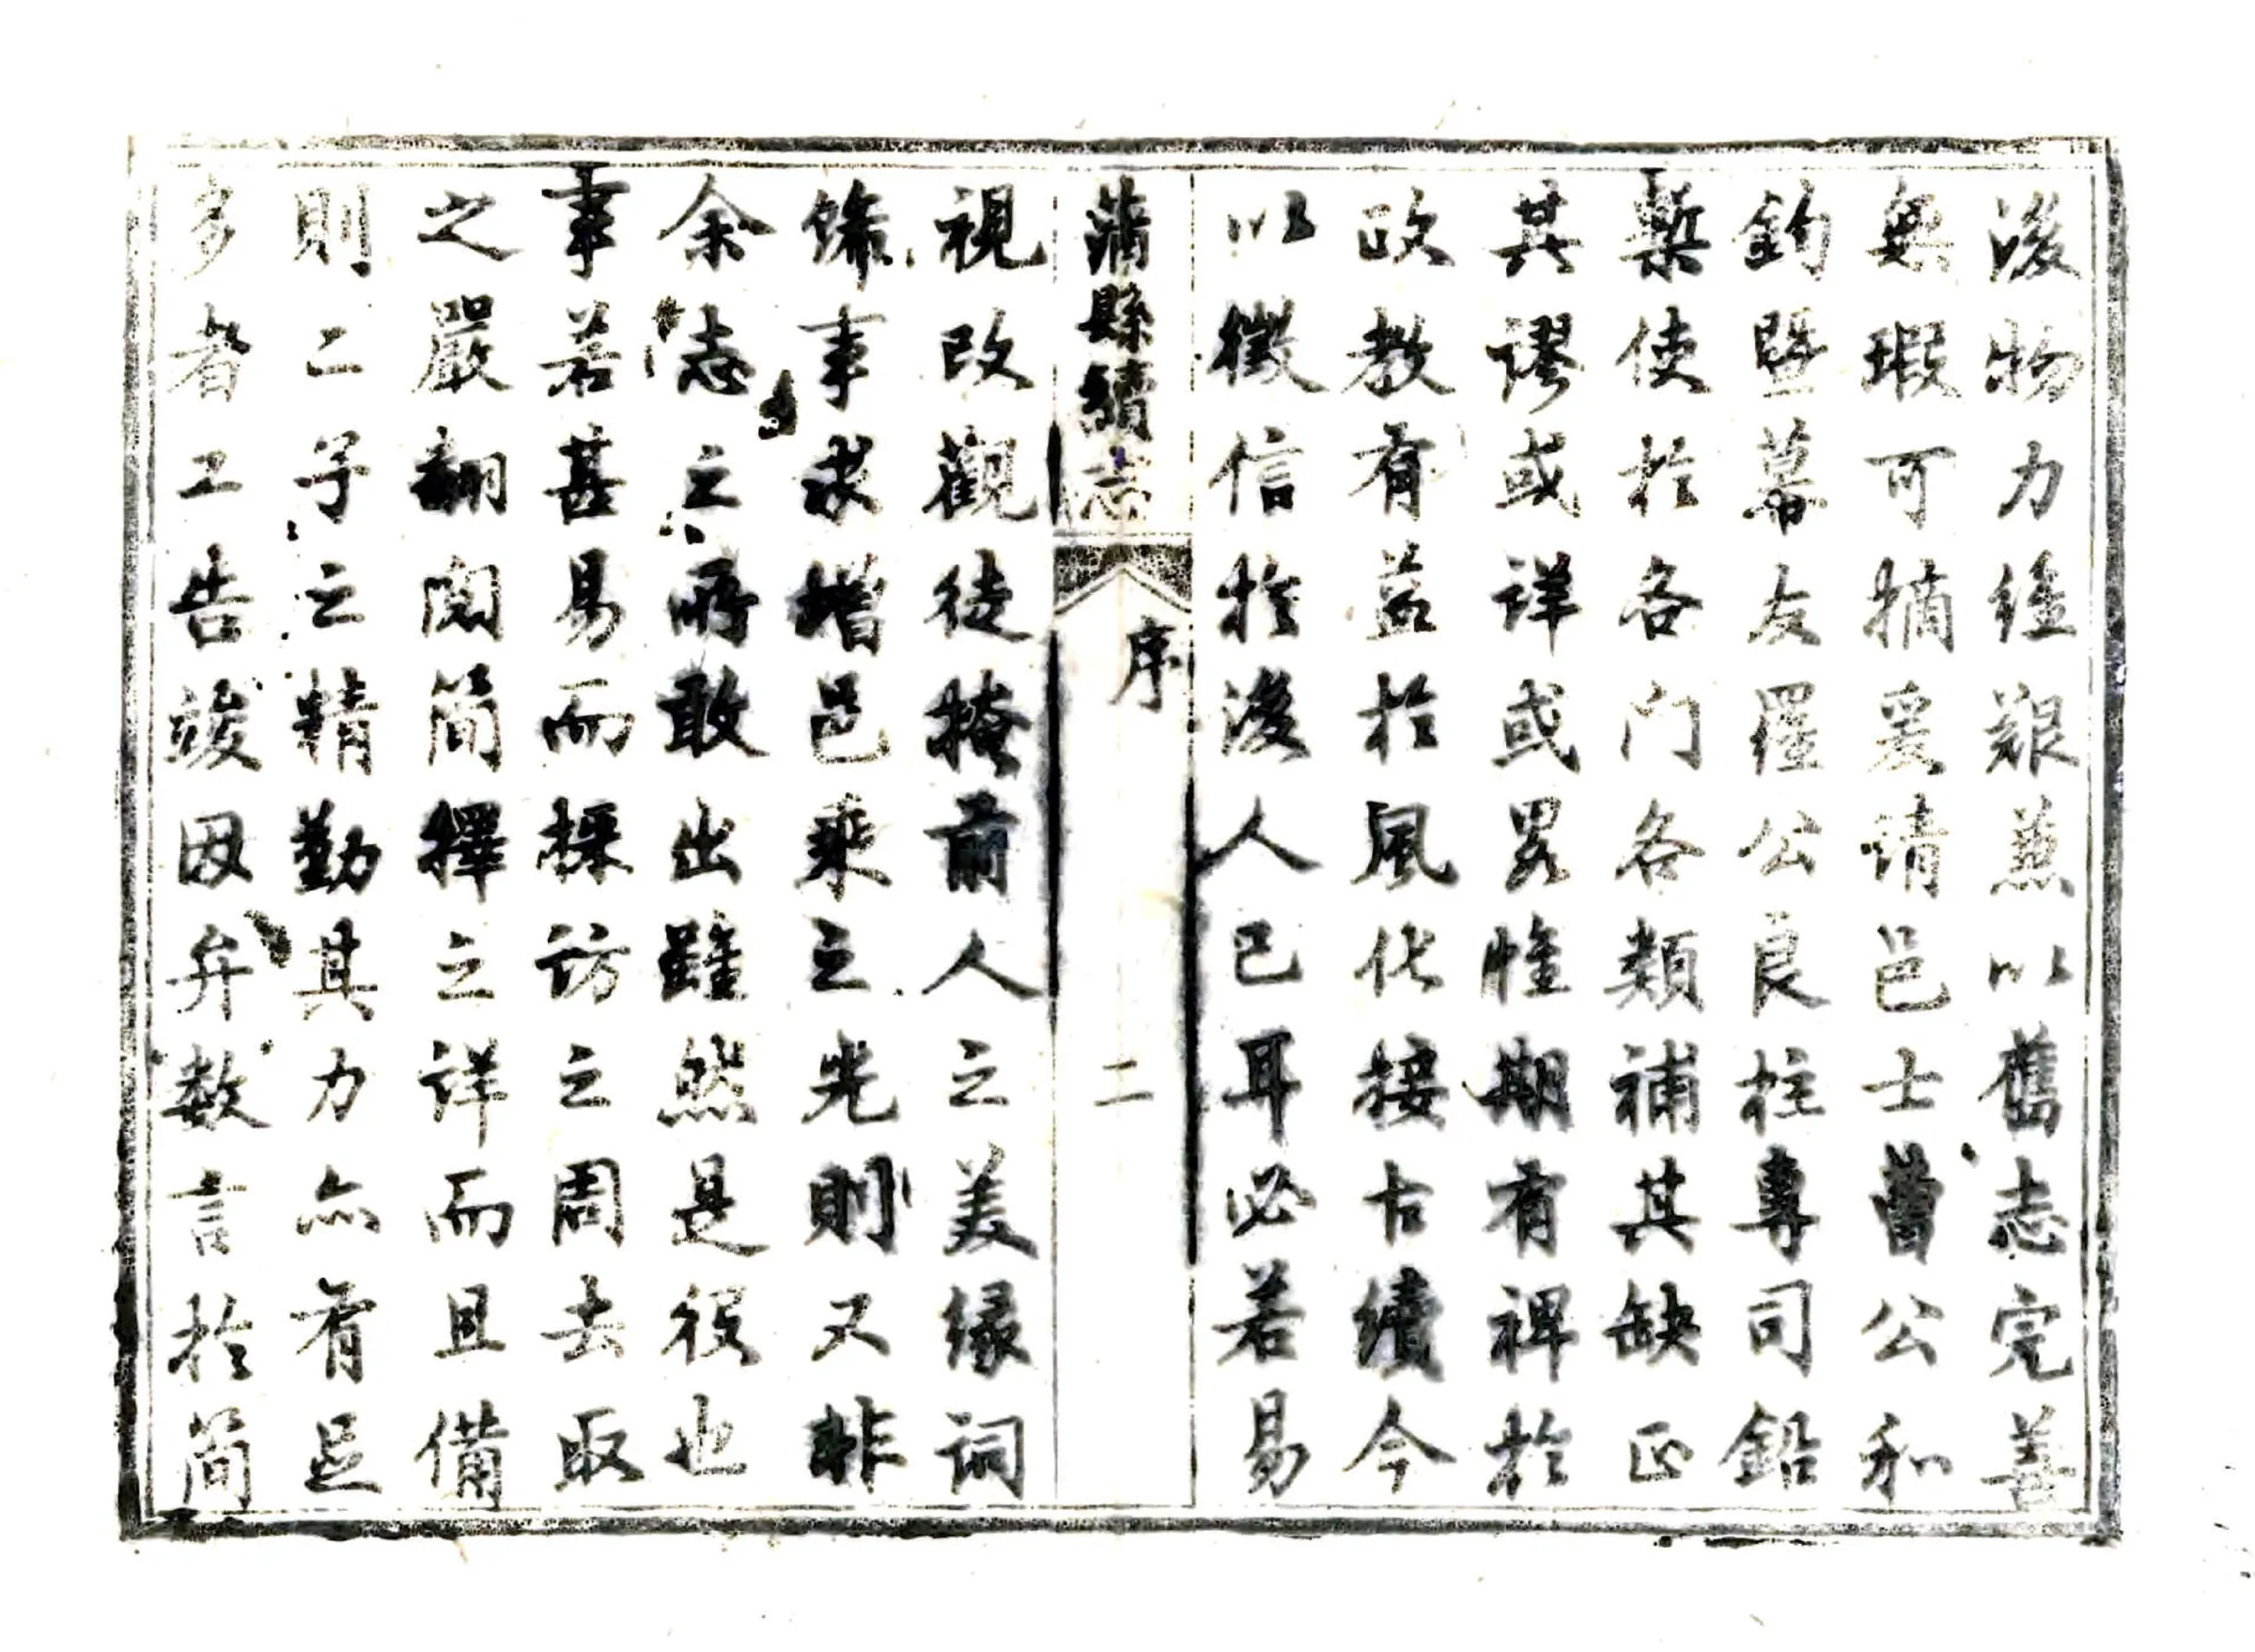 後物力維艱兼以舊志完善
無瑕可摘爰請邑士曹公和
鈞暨幕友羅公良柱專司鉛
槧使於各门各類補其缺正
其謬或詳或畧惟期有裨於
政教有益於風化接古續今
以徵信於後人已耳必若易
蒲縣續志
序
二
視改觀徒掩前人之美緣詞
餙事求增邑乘之光則又非
余志之所敢出雖然是役也
事若甚易而採訪之周去取
之嚴翻閱簡擇之詳而且備
則二子之精勤其力亦有足
多者工告竣因弁数言於简